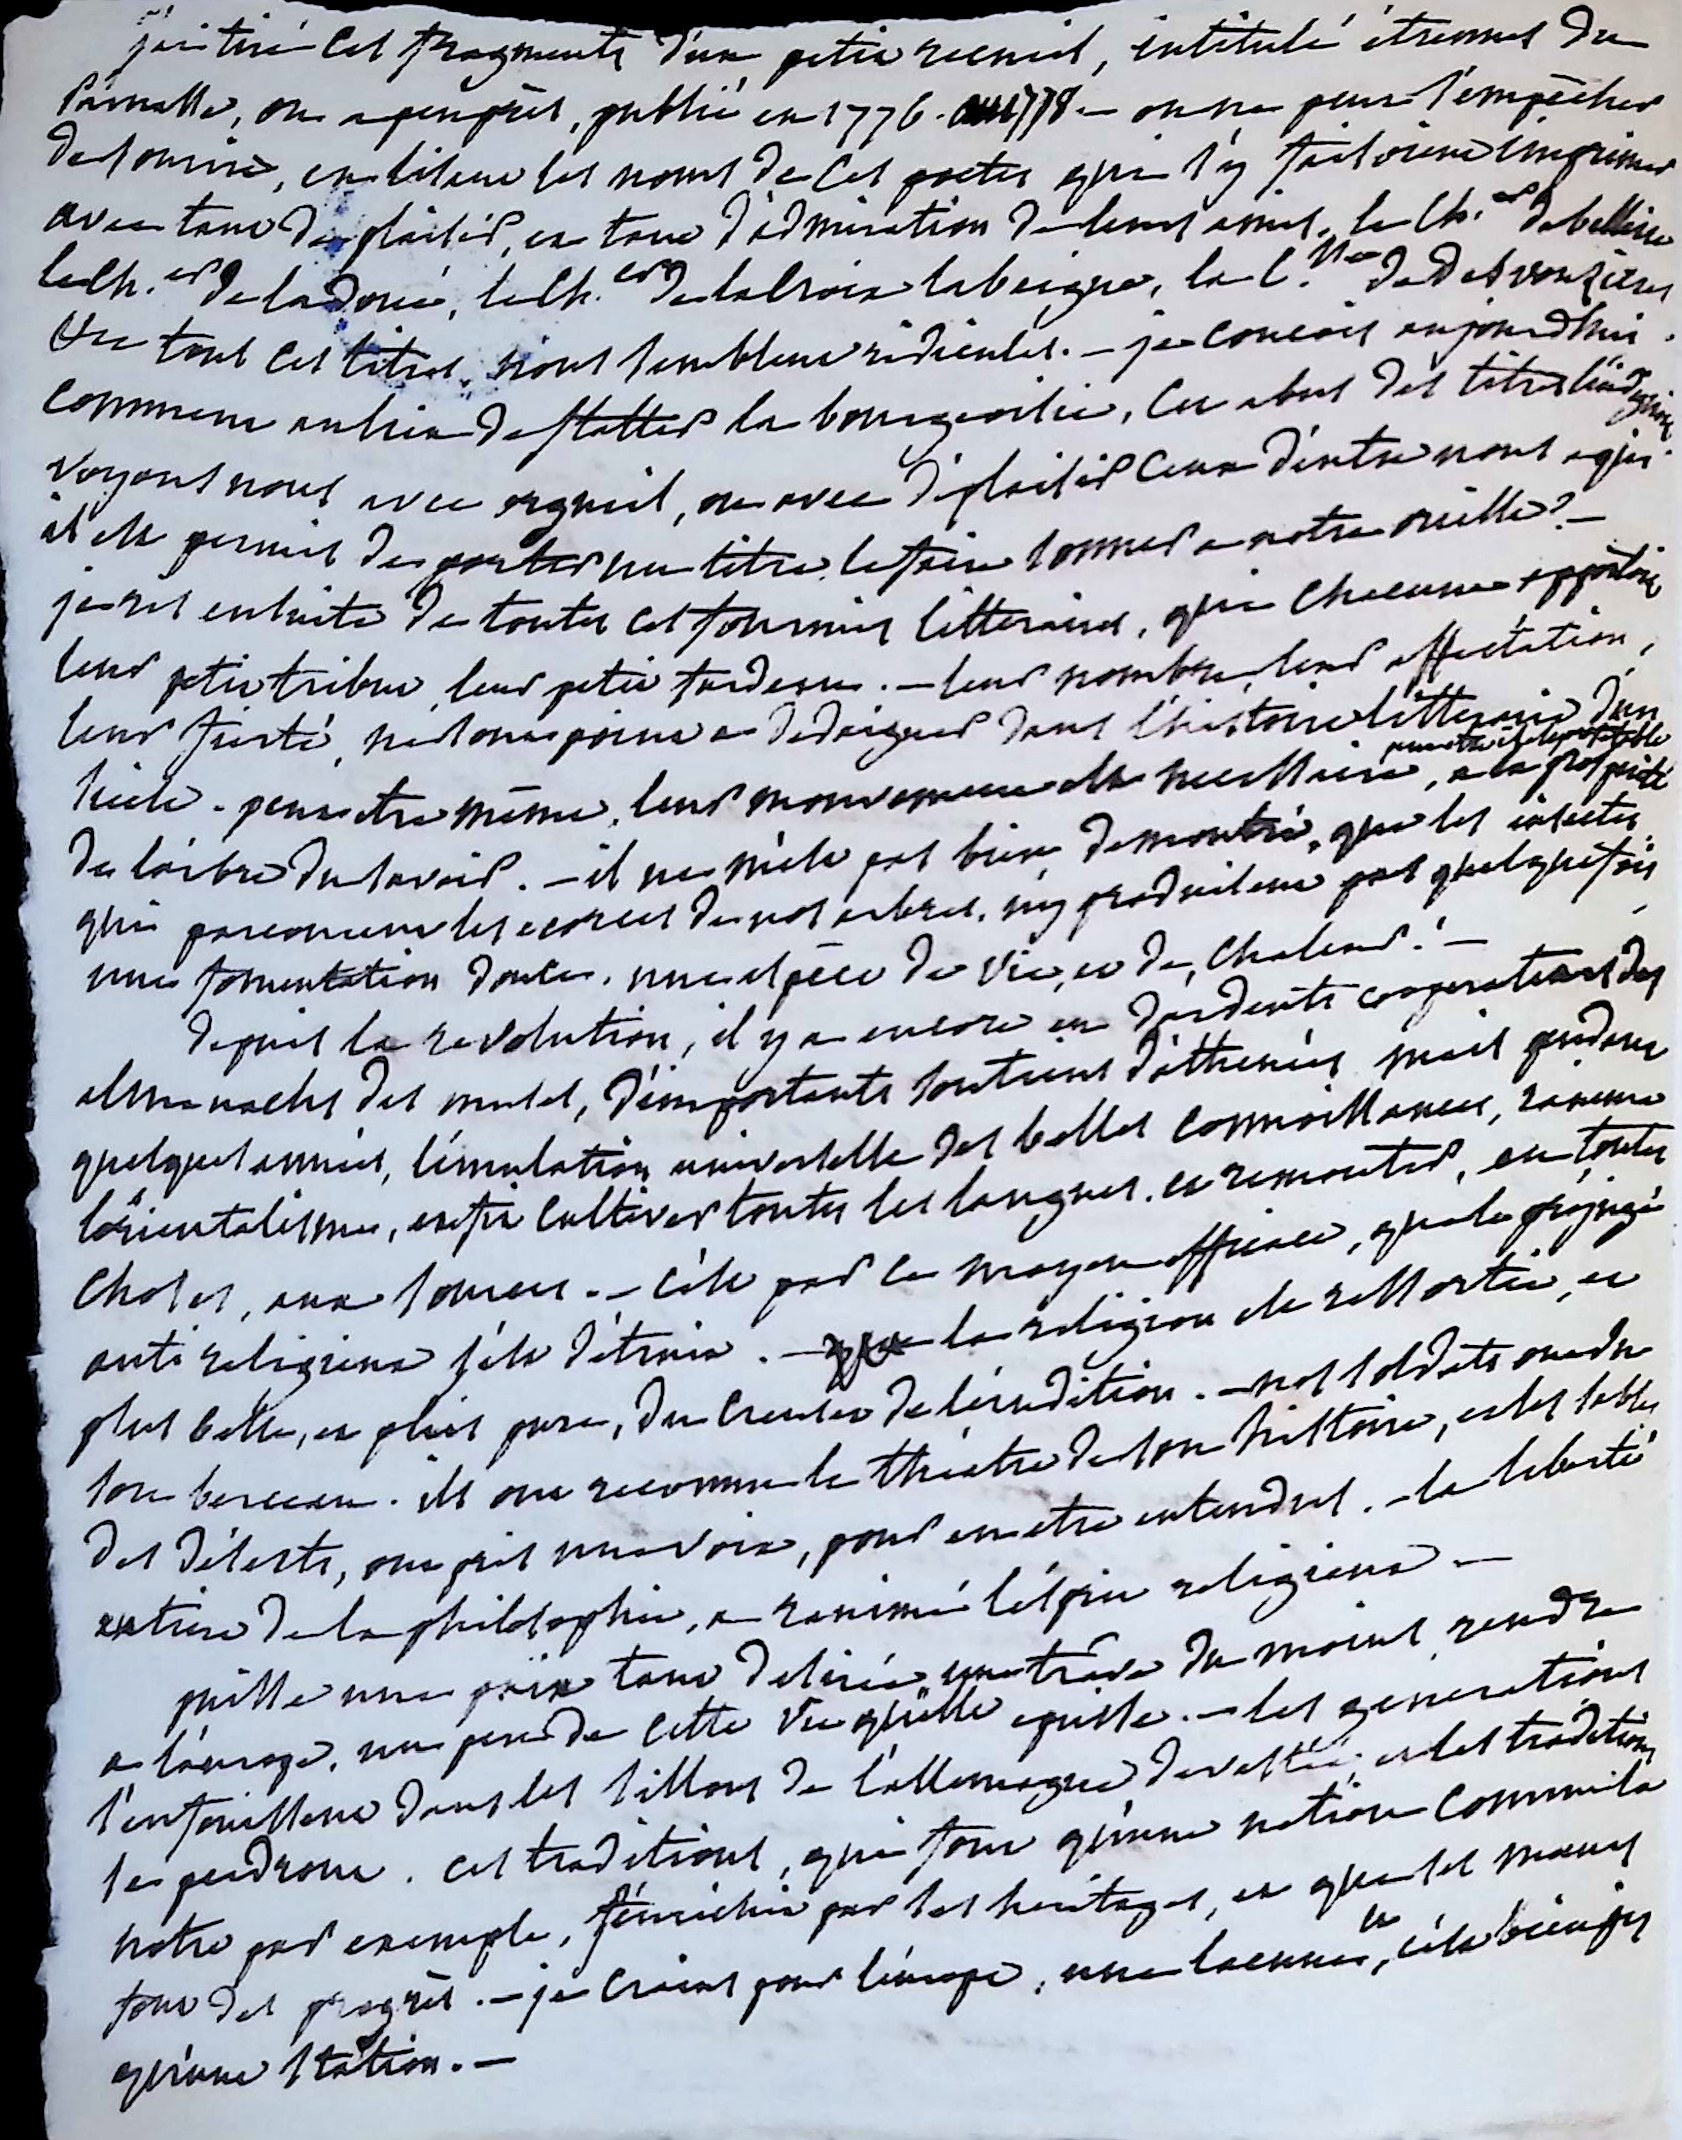 j'ai tiré ces fragments d'un petit recueil, intitulé étrennes du
Parnasse, ou apeuprès, publié en 1776. ou 1778 — on ne peut s'empêcher
de sourire, en lisant les noms de ces poetes qui s'y faisoient imprimer
avec tant de plaisir, et tant d'admiration de leurs amis. le Ch.er de
le Ch.er de la Doué, le Ch.er de la Croix la beigue, la C.tesse de
Que tous ces titres, nous semblent ridicules. — je conçois aujourdhui
comment au lieu de flatter la bourgeoisie, cet abus des titres l'indignoit.
voyons nous avec orgueil, ou avec déplaisir ceux d'entre nous a qui
il est permis de porter un titre, le faire sonner a notre oreille? —
je ris ensuite de toutes ces fourmis litteraires, qui chacune apportoient
leur petit tribut, leur petit fardeau. — leur nombre, leur affectation,
leur fierté, ne sont point a dedaigner dans l'histoire litteraire d'un
siècle. peut etre même, leur mouvement est necessaire, a la prosperité
peut etre
de l'arbre du savoir. — il ne m'est pas bien demontré, que les insectes
qui parcourent les ecorces de nos arbres, n'y produisent pas quelquefois
une fomentation douce, une espèce de vie, et de chaleur! —
depuis la revolution, il y a encore eu d'ardents cooperateurs des
almanachs des muses, d'importants soutiens d'athenées mais pendant
quelques années, l'émulation universelle des belles connoissances, ranima
l'orientalisme, enfit cultiver toutes les langues, et remonter, en toutes
choses, aux sources. — c'est par ce moyen efficace, que le préjugé
anti religieux s'est détruit. — la religion est ressortie, et
plus belle, et plus pure, du creuset de l'érudition. — nos soldats ont vu
son berceau. ils ont reconnu le théatre de son histoire, et les sables
des déserts, ont pris une voix, pour en etre entendus. — la liberté
entiere de la philosophie, a ranimé l'esprit religieux —
puisse une paix tant desirée, une trève du moins, rendre
a l'europe, un peu de cette vie qu'elle epuise. — les generations
s'enfouissent dans les sillons de l'allemagne devastée, et les traditions
se perdront. ces traditions, qui font qu'une nation comme la
notre par exemple, s'enrichit par les heritages, et que les mœurs
font des progrès. — je crains pour l'europe, une lacune, et c'est bien pis
qu'une station. —